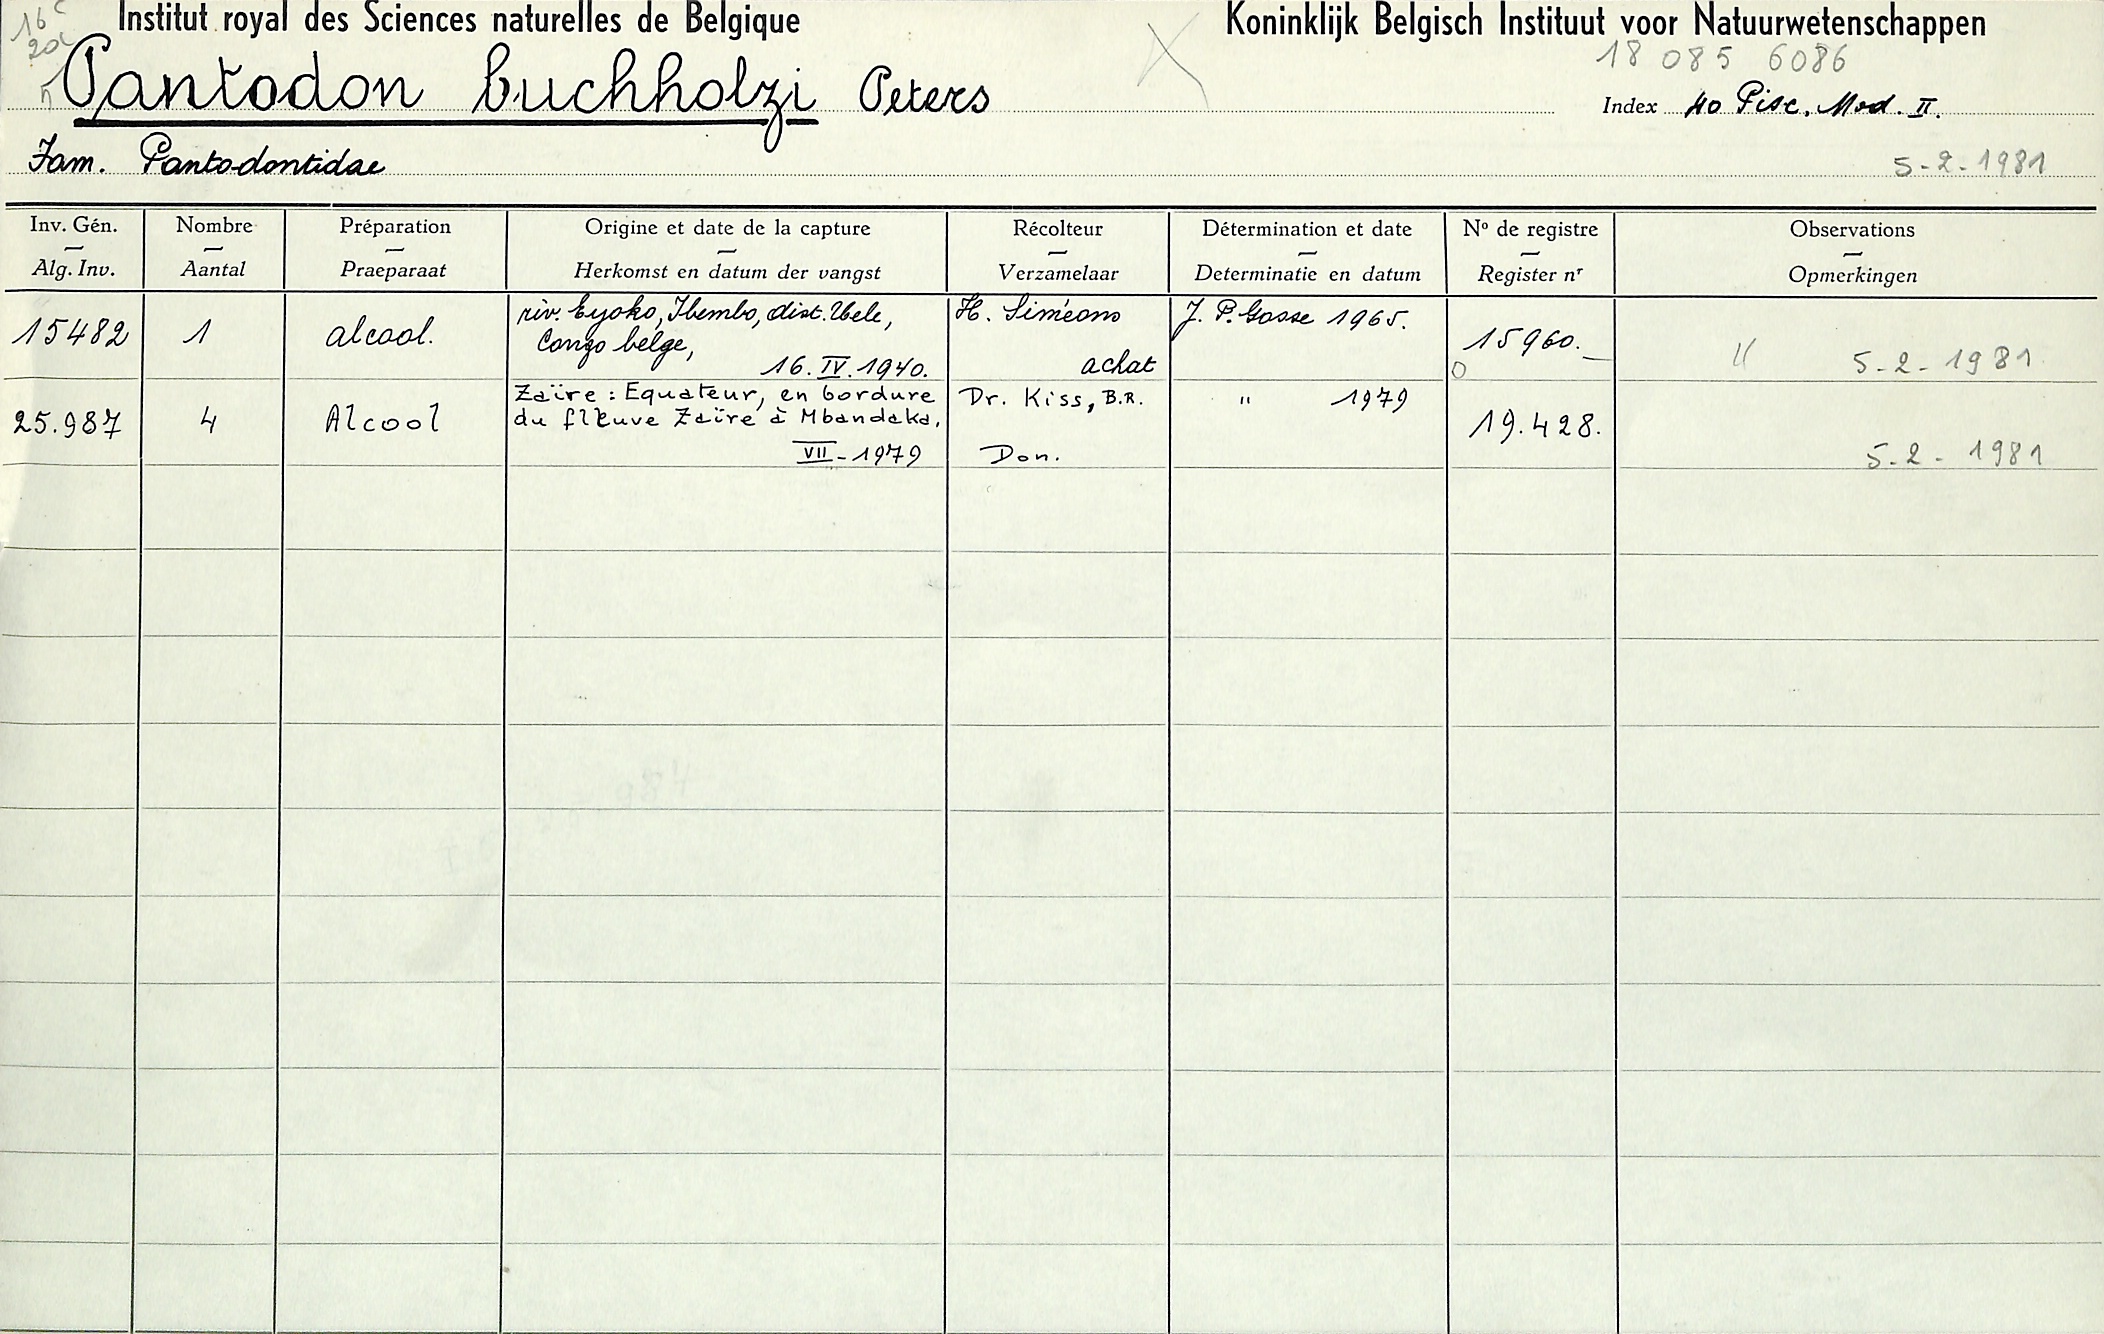 16c Institut royal des Sciences naturelles de Belgique Koninklijk Belgisch Instituut voor Natuurwetenschappen
20c 18 085 6086
Pantodon buchholzi Peters Index 40 Pisc. Mod. II.
Fam. Pantodontidae 5-2-1981
Inv. Gén. Nombre Préparation Origine et date de la capture Récolteur Détermination et date Nº de registre Observations
Alg. Inv. Aantal Praeparaat Herkomst en datum der vangst Verzamelaar Determinatie en datum Register nr Opmerkingen
riv. Eyoko, Ibembo, dist. Uele, H. Siméons J. P. Gosse 1965.
15482 1 alcool. Congo belge, 15960.
16.IV.1940. achat 0 5-2-1981
Zaïre : Equateur, en bordure Dr. Kiss, B.R. " 1979
25.987 4 Alcool du fleuve Zaïre à Mbandaka, 19.428.
VII-1979 Don. 5-2-1981